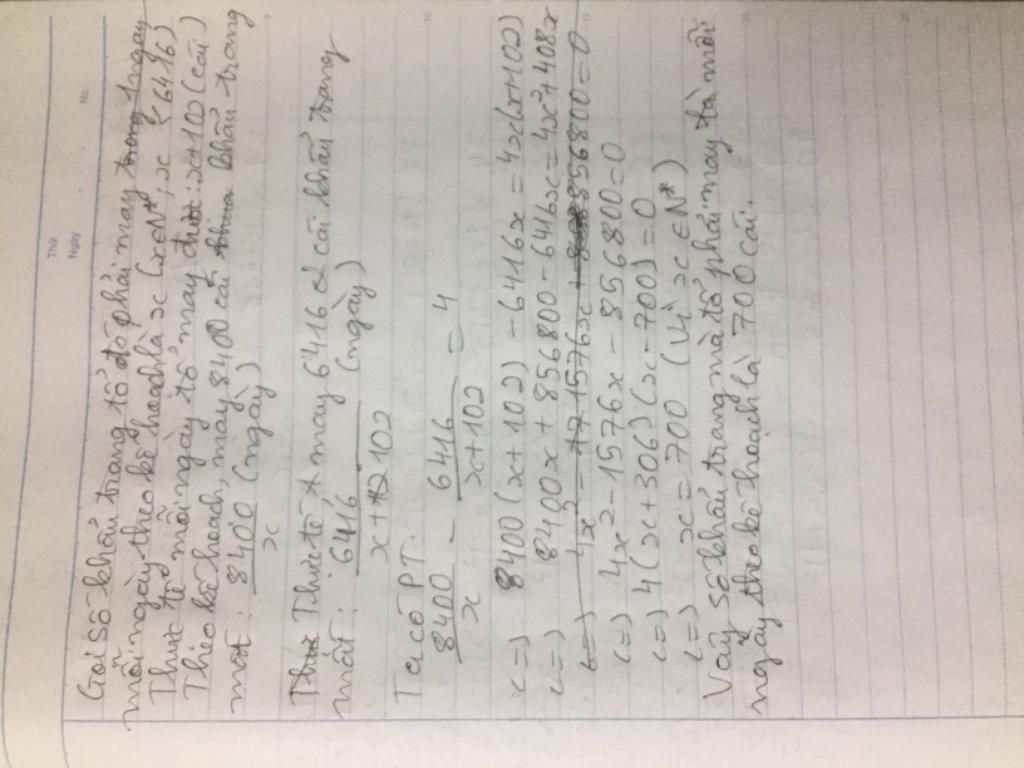 Thứ
Ngày
No.
Gọi số khẩu trang tổ đó phải may trong 1 ngày
mỗi ngày theo kế hoạch là x (x∈N*; x < 6416)
Thực tế mỗi ngày tổ may được: x+102 (cái)
Theo kế hoạch, may 8400 cái khẩu trang
mất: 8400/x (ngày)
Thực tế may 6416 cái khẩu trang
mất: 6416/(x+102) (ngày)
Ta có PT:
8400/x - 6416/(x+102) = 4
<=> 8400(x+102) - 6416x = 4x(x+102)
<=> 8400x + 856800 - 6416x = 4x²+408x
<=> 4x² - 1576x - 856800 = 0
<=> 4x² - 1576x - 856800 = 0
<=> 4(x+306)(x-700) = 0
<=> x = 700 (Vì x∈N*)
Vậy số khẩu trang mà tổ phải may là mỗi
ngày theo kế hoạch là 700 cái.